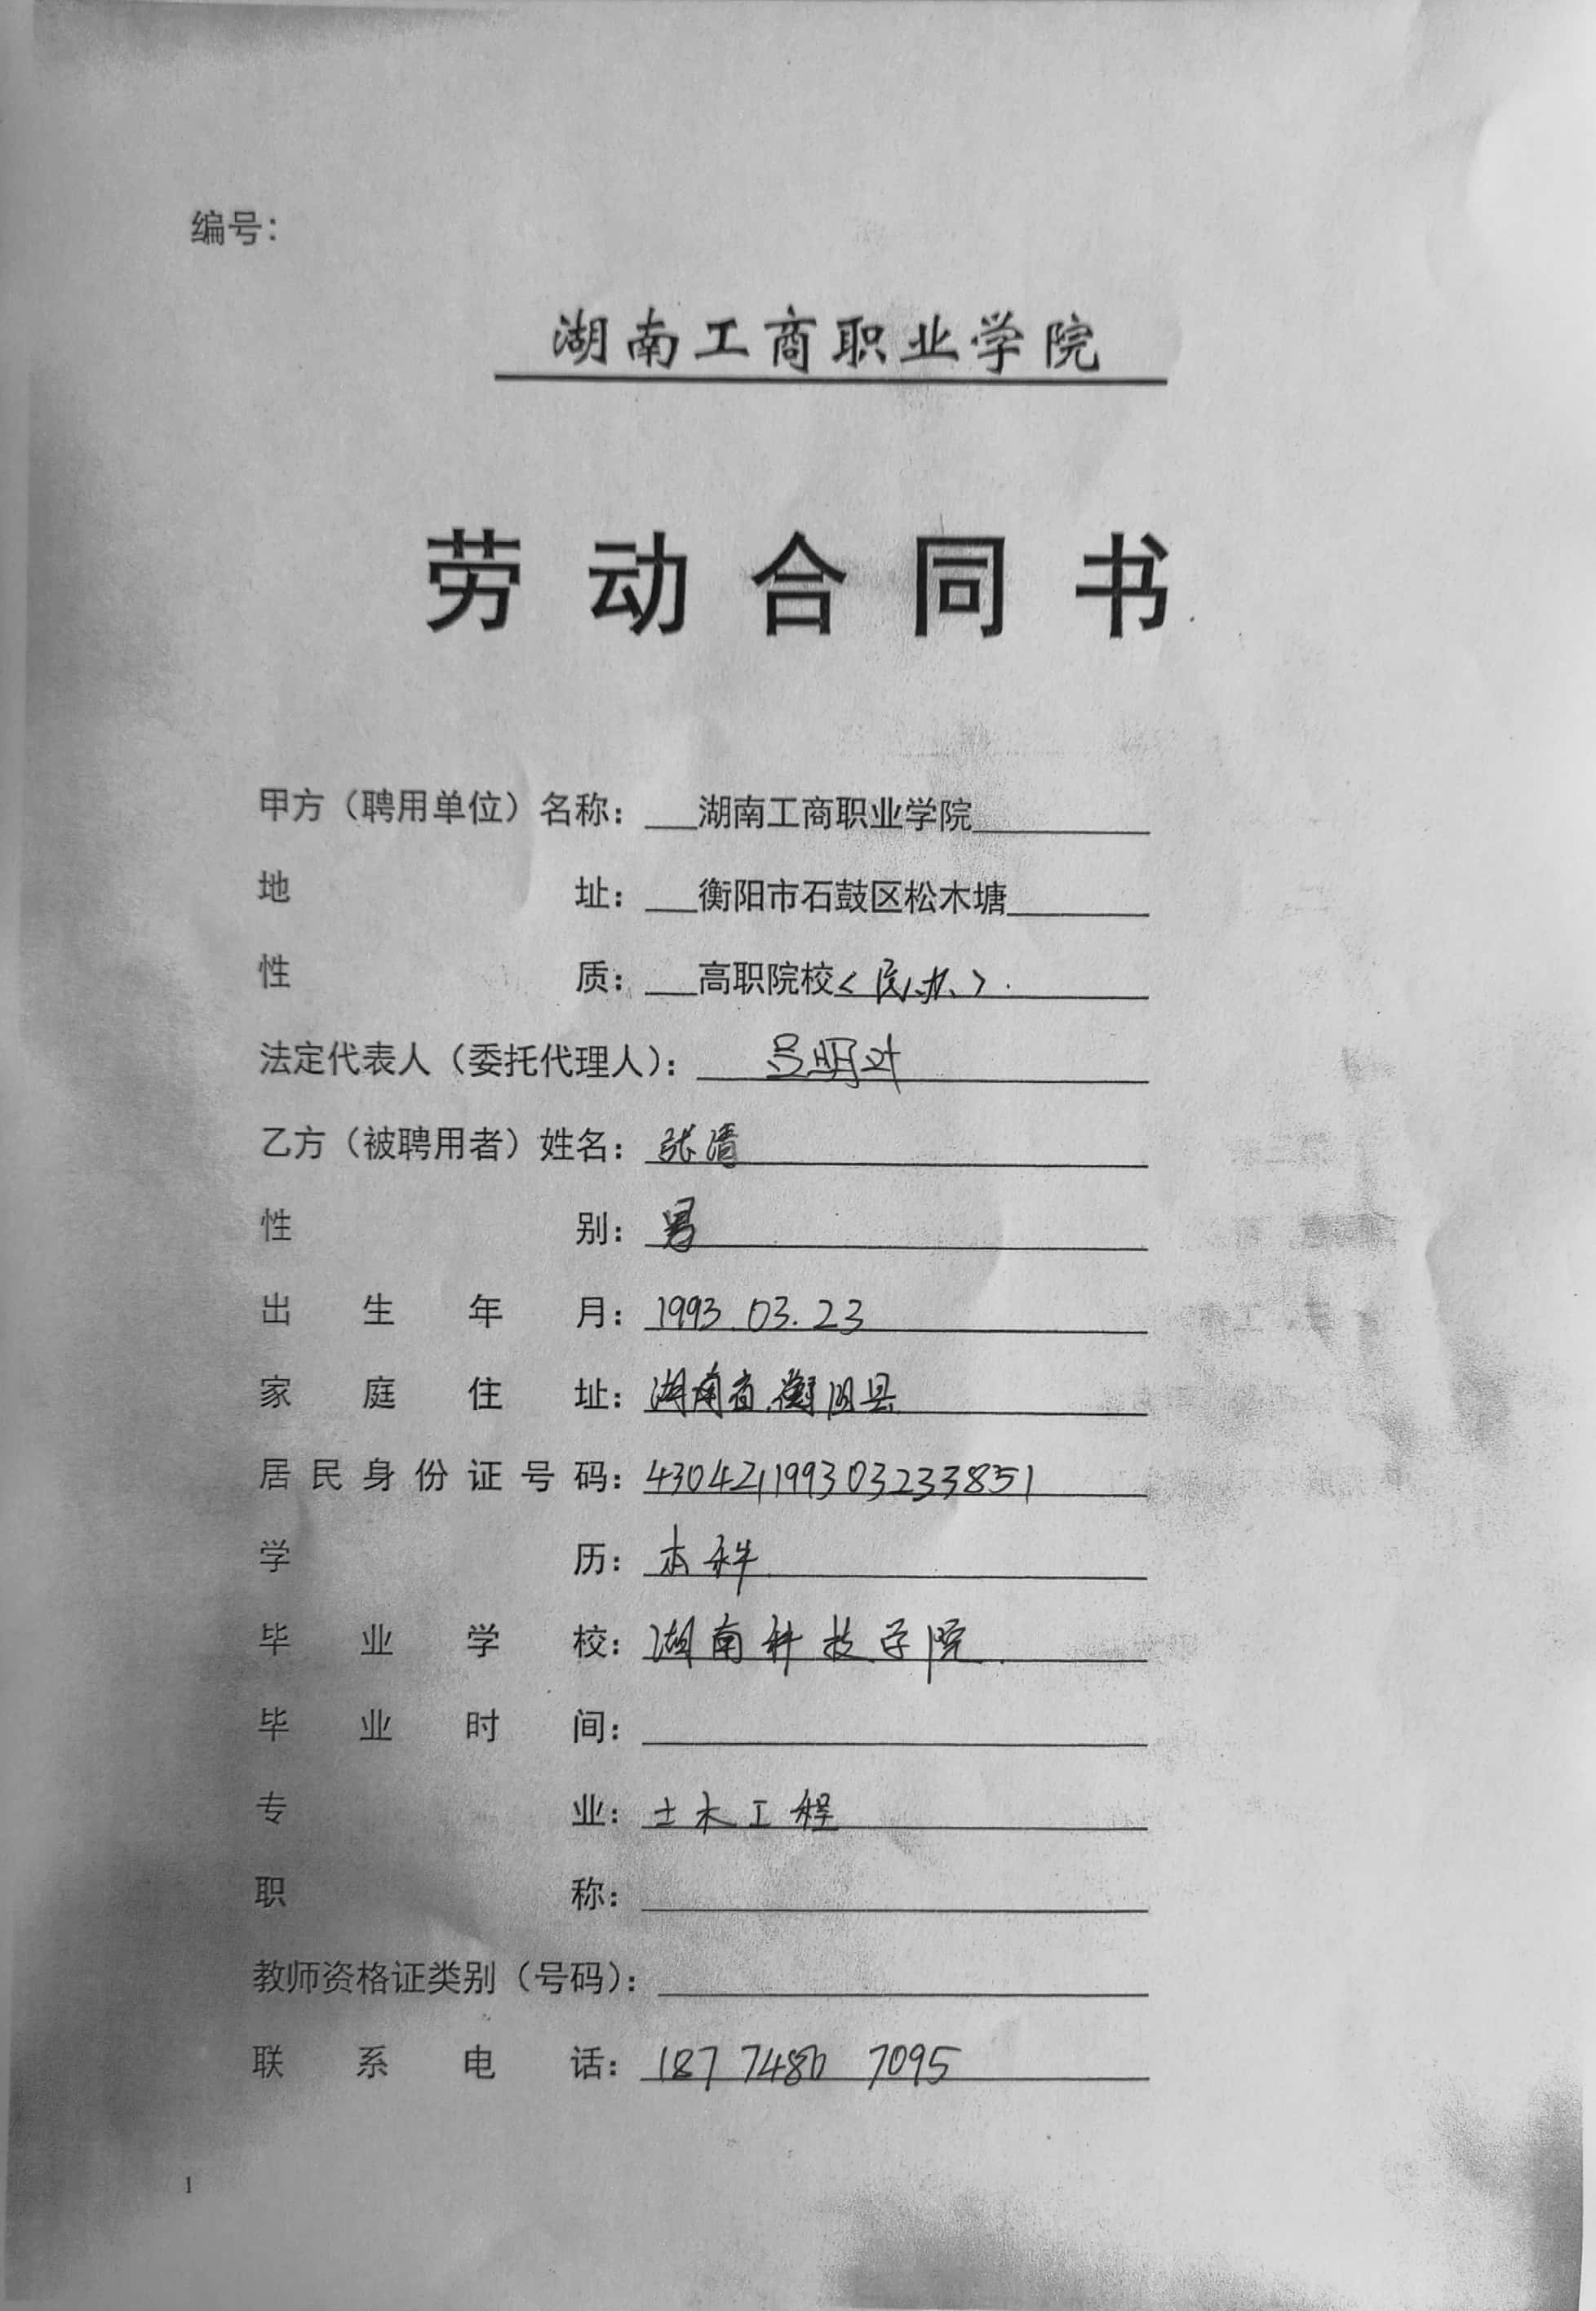 编号：
湖南工商职业学院
劳动合同书
甲方（聘用单位）名称： 湖南工商职业学院
地址： 衡阳市石鼓区松木塘
性质： 高职院校<民办>.
法定代表人（委托代理人）： 吕明
乙方（被聘用者）姓名： 张清
性别： 男
出生年月： 1993.03.23
家庭住址： 湖南省衡阳县
居民身份证号码： 430421199303233851
学历： 本科
毕业学校： 湖南科技学院
毕业时间：
专业： 土木工程
职称：
教师资格证类别（号码）：
联系电话： 187 7480 7095
1